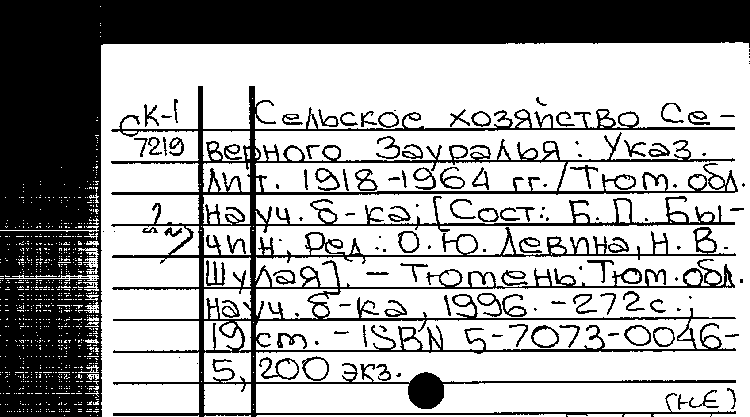 СК-1
7219
Сельское хозяйство Се-
верного Зауралья: Указ.
лит. 1918-1964 гг. / Тюм. обл.
науч. б-ка; [Сост.: Б. П. Бы-
чин; Ред.: О. Ю. Левина, Н. В.
Шулая]. - Тюмень: Тюм. обл.
науч. б-ка, 1996. - 272 с.;
19 см. - ISBN 5-7073-0046-
5, 200 экз.
(НЕ)